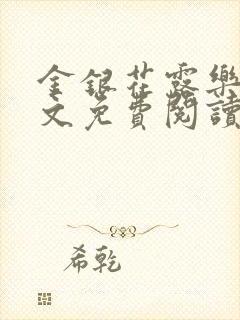 金銀花露樂
文免費閱讀
希乾